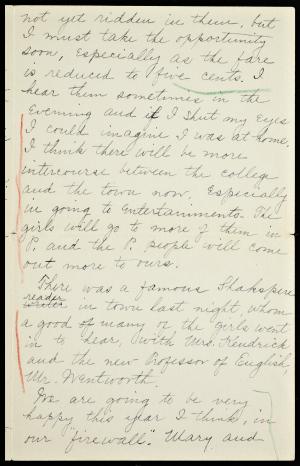 not yet ridden in them, but
I must take the opportunity
soon, especially as the fare
is reduced to five cents. I
hear them sometimes in the
Evening and if I shut my Eyes
I could imagine I was at home.
I think there will be more
intercourse between the college
and the town now. Especially
in going to Entertainments. The
girls will go to more of them in
P. and the P. people will come
out more to ours.
There was a famous Shakspere
reader
writer in town last night, whom
a good of many or the girls went
in to hear, with Mrs. Kendrick
and the new Professor of English,
Mr. Wentworth.
We are going to be very
happy this year I think, in
our "firewall". Mary and